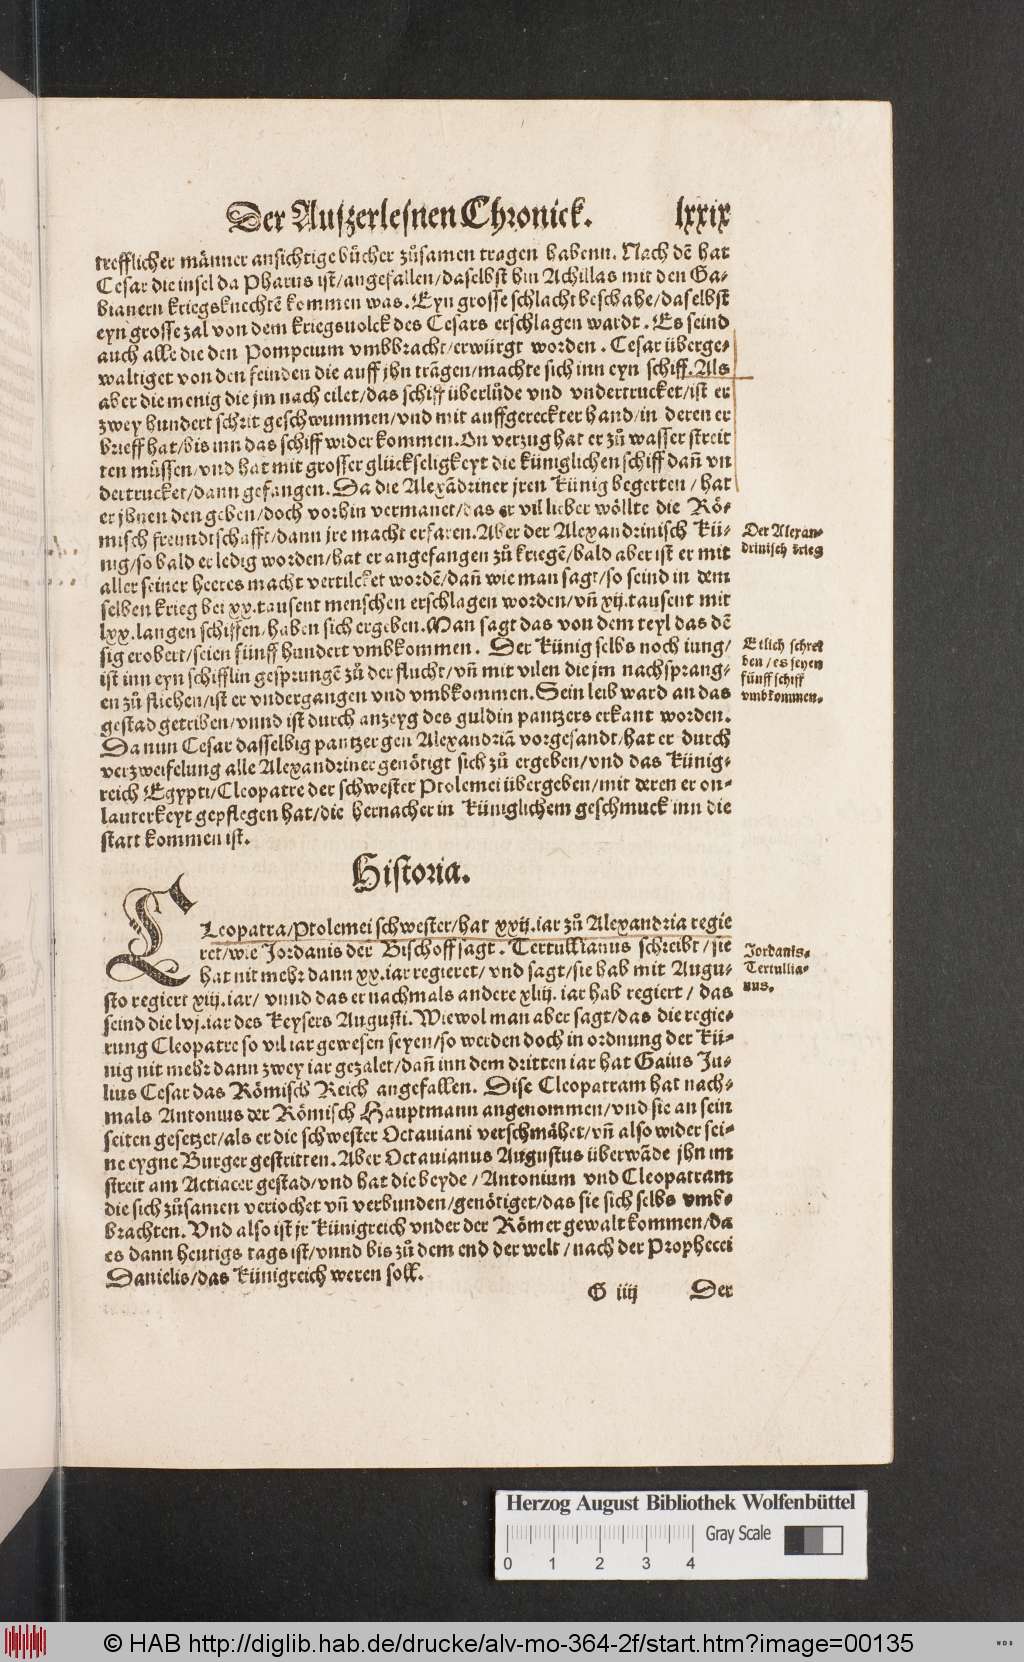 Der Auszerlesnen Chronick. lxxix
trefflicher männer ansichtige bůcher zůsamen tragen habenn. Nach dē hat
Cesar die insel da Pharus ist/angefallen/daselbst hin Achillas mit den Ga-
bianern kriegsknechtē kommen was. Eyn grosse schlacht beschahe/daselbst
eyn grosse zal von dem kriegsuolck des Cesars erschlagen wardt. Es seind
auch alle die den Pompeium vmbbracht/erwürgt worden. Cesar überge-
waltiget von den feinden die auff jhn trāgen/machte sich inn eyn schiff. Als
aber die menig die jm nach eilet/das schiff überlůde vnd vndertrucket/ist er
zwey hundert schrit geschwummen/vnd mit auffgereckter hand/in deren er
brieff hat/bis inn das schiff wider kommen. On verzug hat er zů wasser streit
ten můssen/vnd hat mit grosser glückseligkeyt die küniglichen schiff dañ vn
dertrucket/dann gefangen. Da die Alexādriner jren Künig begerten/hat
er jhnen den geben/doch vorhin vermanet/das er vil lieber wöllte die Rö-
misch freundtschafft/dann jre macht erfaren. Aber der Alexandrinisch Kü-
nig/so bald er ledig worden/hat er angefangen zů kriegē/bald aber ist er mit
aller seiner heeres macht vertilcket wordē/dañ wie man sagt/so seind in dem
selben krieg bei xx.tausent menschen erschlagen worden/vñ xij.tausent mit
lxx.langen schiffen/haben sich ergeben. Man sagt das von dem teyl das dē
sig erobert/seien fünff hundert vmbkommen. Der Künig selbs noch iung/
ist inn eyn schifflin gesprungē zů der flucht/vñ mit vilen die jm nachsprang-
en zů fliehen/ist er vndergangen vnd vmbkommen. Sein leib ward an das
gestad getriben/vnnd ist durch anzeyg des guldin pantzers erkant worden.
Da nun Cesar dasselbig pantzer gen Alexandriā vorgesandt/hat er durch
verzweifelung alle Alexandriner genötigt sich zů ergeben/vnd das Künig-
reich Egypti/Cleopatre der schwester Ptolemei übergeben/mit deren er on-
lauterkeyt gepflegen hat/die hernacher in küniglichem geschmuck inn die
statt kommen ist.
Der Alexan-
drinisch krieg
Etlich schrei
ben/es seyen
fünff schiff
vmbkommen.
Historia.
CLeopatra/Ptolemei schwester/hat xxij.iar zů Alexandria regie
ret/wie Jordanis der Bischoff sagt. Tertullianus schreibt/sie
hat nit mehr dann xx.iar regieret/vnd sagt/sie hab mit Augu-
sto regiert xiij.iar/vnnd das er nachmals andere xliij.iar hab regiert/das
seind die lvj.iar des Keysers Augusti. Wiewol man aber sagt/das die regie-
rung Cleopatre so vil iar gewesen seyen/so werden doch in ordnung der Kü-
nig nit mehr dann zwey iar gezalet/dañ inn dem dritten iar hat Gaius Ju-
lius Cesar das Römisch Reich angefallen. Dise Cleopatram hat nach-
mals Antonius der Römisch Hauptmann angenommen/vnd sie an sein
seiten gesetzet/als er die schwester Octauiani verschmähet/vñ also wider sei-
ne eygne Burger gestritten. Aber Octauianus Augustus überwāde jhn im
streit am Actiacer gestad/vnd hat die beyde/Antonium vnd Cleopatram
die sich zůsamen veriochet vñ verbunden/genötiget/das sie sich selbs vmb-
brachten. Vnd also ist jr Künigreich vnder der Römer gewalt kommen/da
es dann heutigs tags ist/vnnd bis zů dem end der welt/nach der Prophecei
Danielis/das Künigreich weren soll.
Jordanis.
Tertullia-
nus.
G iiij Der
Herzog August Bibliothek Wolfenbüttel
0 1 2 3 4 Gray Scale
© HAB http://diglib.hab.de/drucke/alv-mo-364-2f/start.htm?image=00135